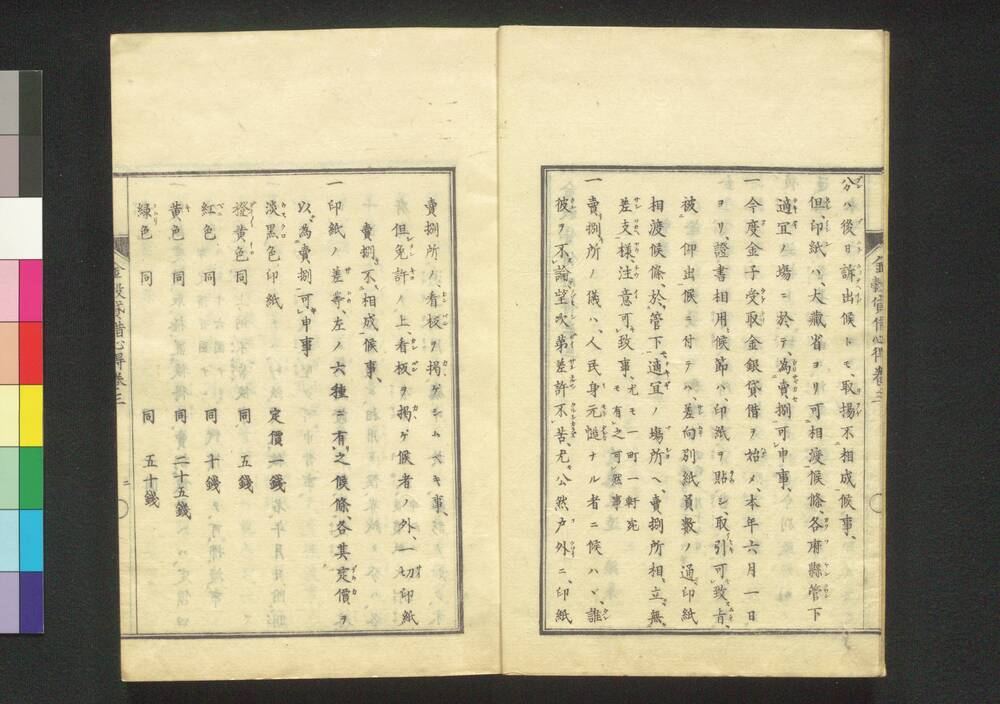 分ハ後日訴出候トモ、取揚不相成候事、
但、印紙ハ、大藏省ヨリ可相渡候條、各府縣管下
適宜ノ場ニ於テ、為賣捌可申事、
一今度金子受取金銀貸借ヲ始メ、本年六月一日
ヨリ證書相用候節ハ、印紙ヲ貼シ、取引可致旨、
被 仰出候ニ付テハ、差向別紙員數ノ通、印紙
相渡候條、於管下適宜ノ場所ヘ、賣捌所相立、無
差支様、注意可致事、尤モ一町一軒宛
モ有之可然事
一賣捌所ノ儀ハ、人民身元慥ナル者ニ候ハヾ、誰
彼ヲ不論、望次第差許不苦、尤公然戸外ニ、印紙
金穀貸借心得卷三
賣捌所ノ看板ヲ掲ゲシムベキ事、
但免許ノ上、看板ヲ掲ゲ候者ノ外、一切印紙
賣捌不相成候事、
一印紙ノ差等、左ノ六種ニ有之候條、各其定價ヲ
以、為賣捌可申事
淡黒色印紙 定價一錢
橙黄色同 同 五錢
紅色 同 同 十錢
黄色 同 同 二十五錢
緑色 同 同 五十錢
二